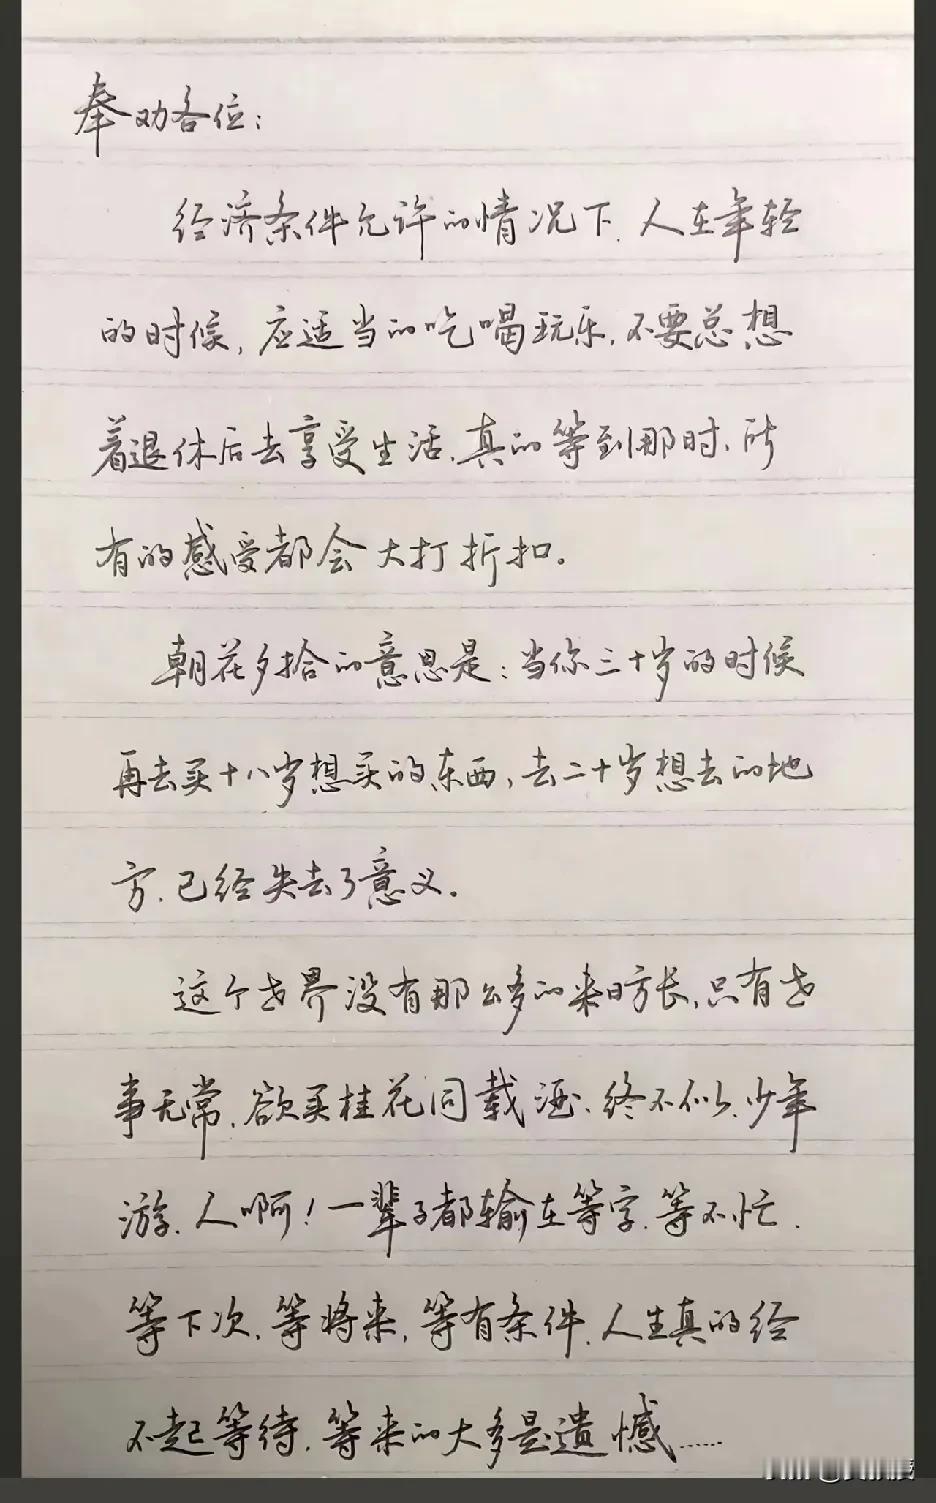 奉劝各位：
经济条件允许的情况下，人在年轻
的时候，应适当的吃喝玩乐，不要总想
着退休后去享受生活，真的等到那时，所
有的感受都会大打折扣。
朝花夕拾的意思是：当你三十岁的时候
再去买十八岁想买的东西，去二十岁想去的地
方，已经失去了意义。
这个世界没有那么多的来日方长，只有世
事无常，欲买桂花同载酒，终不似，少年
游，人啊！一辈子都输在等字，等不忙，
等下次，等将来，等有条件，人生真的经
不起等待，等来的大多是遗憾……